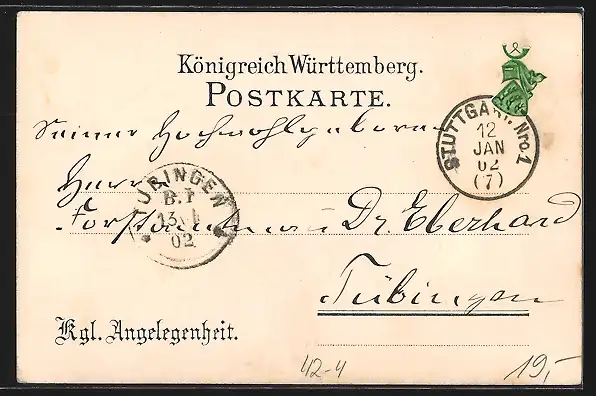 Königreich Württemberg.
POSTKARTE.
STUTTGART. Nro. 1
12
JAN
02
(7)
Seiner Hochwohlgeboren
Herrn
TÜBINGEN
B.P
13
02
Dr. Eberhard
Tübingen
Kgl. Angelegenheit.
42-4
19,-